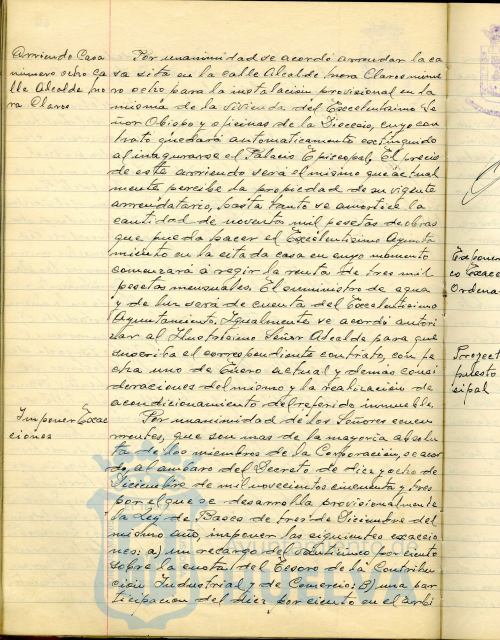 Arriendo Casa
número ocho Ca
lle Alcalde Mo
ra Claros
Por unanimidad se acordó arrendar la ca
sa sita en la calle Alcalde Mora Claros núme
ro ocho para la instalación provisional en la
misma de la vivienda del Excelentísimo Se
ñor Obispo y oficinas de la Diocesis, cuyo con
trato quedará automaticamente extinguido
al inagurarse el Palacio Episcopal, El precio
de este arriendo será el mismo que actual
mente percibe la propiedad de su vigente
arrendatario, hasta tanto se amortice la
cantidad de noventa mil pesetas de obras
que pueda hacer el Excelentísimo Ayunta
miento en la citada casa en cuyo momento
comenzará a regir la renta de tres mil
pesetas mensuales. El suministro de agua
y de luz será de cuenta del Excelentísimo
Ayuntamiento. Igualmente se acordó autori
zar al Ilustrísimo Señor Alcalde para que
suscriba el correspondiente contrato, con fe
cha uno de Enero actual y demás consi
deraciones del mismo y la realización de
acondicionamiento del referido inmueble.
Imponer Exac
ciones
Por unanimidad de los Señores concu
rrentes, que son mas de la mayoria absolu
ta de los miembros de la Corporación, se acor
do, al amparo del Decreto de diez y ocho de
Diciembre de mil novecientos cincuenta y tres
por el que se desarrolla provisionalmente
la Ley de Bases de tres de Diciembre del
mismo año, imponer las siguientes exaccio
nes: a) un recargo del veinticinco por ciento
sobre la cuota del Tesoro de la Contribu
ción Industrial y de Comercio; B) una par
ticipacion del diez por ciento en el arbi
Ordena
Proyect
puesto
sipal